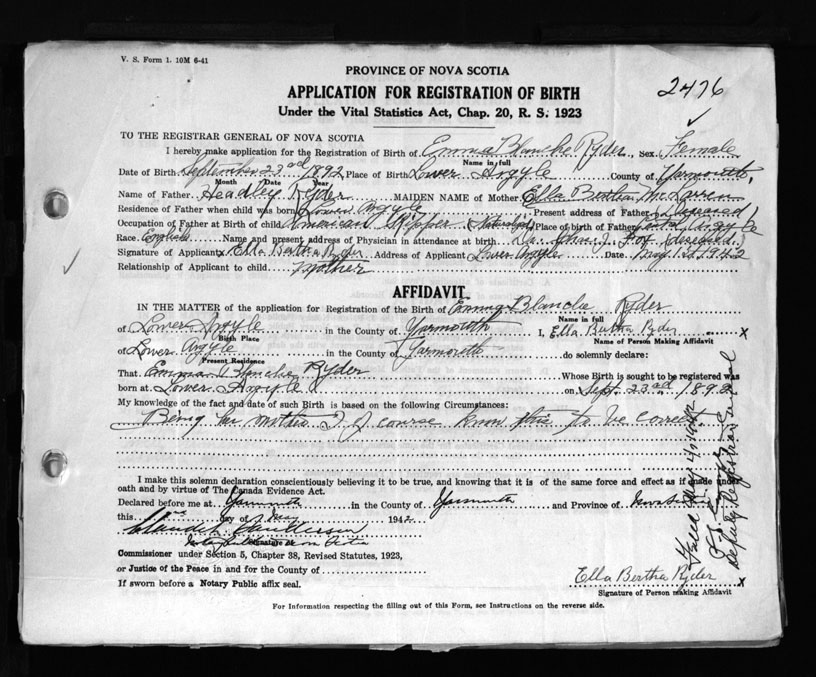 V. S. Form 1. 10M 6-41
PROVINCE OF NOVA SCOTIA
APPLICATION FOR REGISTRATION OF BIRTH
2476
Under the Vital Statistics Act, Chap. 20, R. S. 1923
TO THE REGISTRAR GENERAL OF NOVA SCOTIA
I hereby make application for the Registration of Birth of Emma Blanche Ryder, Sex Female
Name in full
Date of Birth September 23rd 1892, Place of Birth Lower Argyle County of Yarmouth,
Month Date Year
Name of Father Headley Ryder MAIDEN NAME of Mother Ella Bertha McLarren
Residence of Father when child was born Lower Argyle Present address of Father (Deceased)
Occupation of Father at Birth of child American Skipper Place of birth of Father Argyle
Race English Name and present address of Physician in attendance at birth Dr. John J. Fox (deceased)
Signature of Applicant x Ella Bertha Ryder Address of Applicant Lower Argyle Date May 1942
Relationship of Applicant to child mother
AFFIDAVIT
IN THE MATTER of the application for Registration of the Birth of Emma Blanche Ryder
Name in full
of Lower Argyle in the County of Yarmouth I, Ella Bertha Ryder x
Birth Place Name of Person Making Affidavit
of Lower Argyle in the County of Yarmouth do solemnly declare:
Present Residence
That Emma Blanche Ryder Whose Birth is sought to be registered was
born at Lower Argyle on Sept. 23rd, 1892
My knowledge of the fact and date of such Birth is based on the following Circumstances:
Being her mother I of course know this to be correct.
I make this solemn declaration conscientiously believing it to be true, and knowing that it is of the same force and effect as if made under
oath and by virtue of The Canada Evidence Act.
Declared before me at Yarmouth in the County of Yarmouth and Province of Nova Scotia
this day of May 1942
Signature of
Commissioner under Section 5, Chapter 38, Revised Statutes, 1923,
or Justice of the Peace in and for the County of
If sworn before a Notary Public affix seal.
Ella Bertha Ryder x
Signature of Person making Affidavit
For Information respecting the filling out of this Form, see Instructions on the reverse side.
Deputy Registrar General